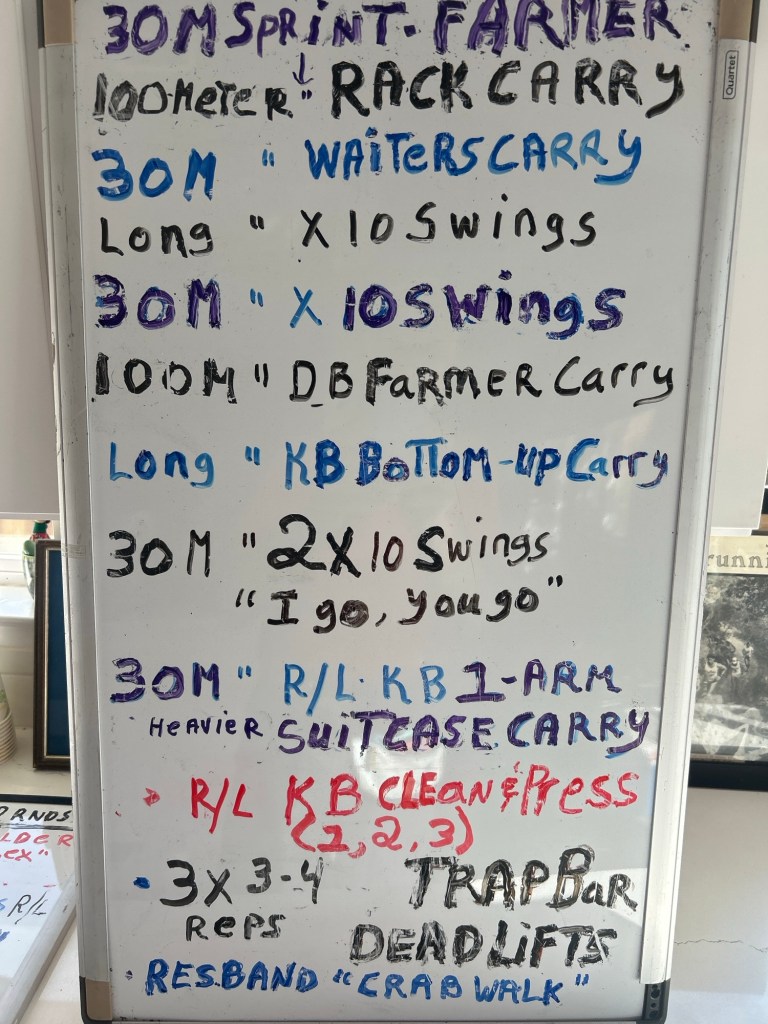 30M SPRINT. FARMER
↓
100 METER " RACK CARRY
30M " WAITERS CARRY
Long " X 10 Swings
30M " X 10 Swings
100M " DB FARMER Carry
Long " KB BOTTOM-UP Carry
30M " 2X10 Swings
"I go, you go"
30M " R/L. KB 1-ARM
HEAVIER SUITCASE CARRY
• R/L KB CLEAN & PRESS
(1,2,3)
• 3X 3-4 TRAP BAR
REPS DEADLIFTS
• RES.BAND "CRAB WALK"
Quartet
runni
RNDS
R/L